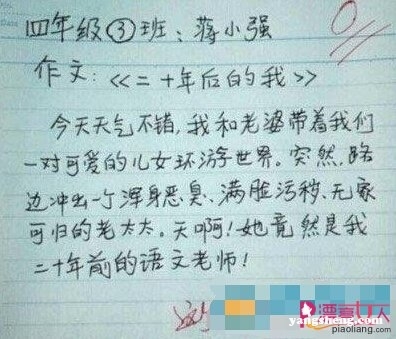 四年级③班：蒋小强
作文：《二十年后的我》
今天天气不错，我和老婆带着我们
一对可爱的儿女环游世界。突然，路
边冲出一个浑身恶臭、满脸污秽、无家
可归的老太太。天啊！她竟然是我
二十年前的语文老师！
0
漂亮女人
yangsheng.com
piaoliang.com